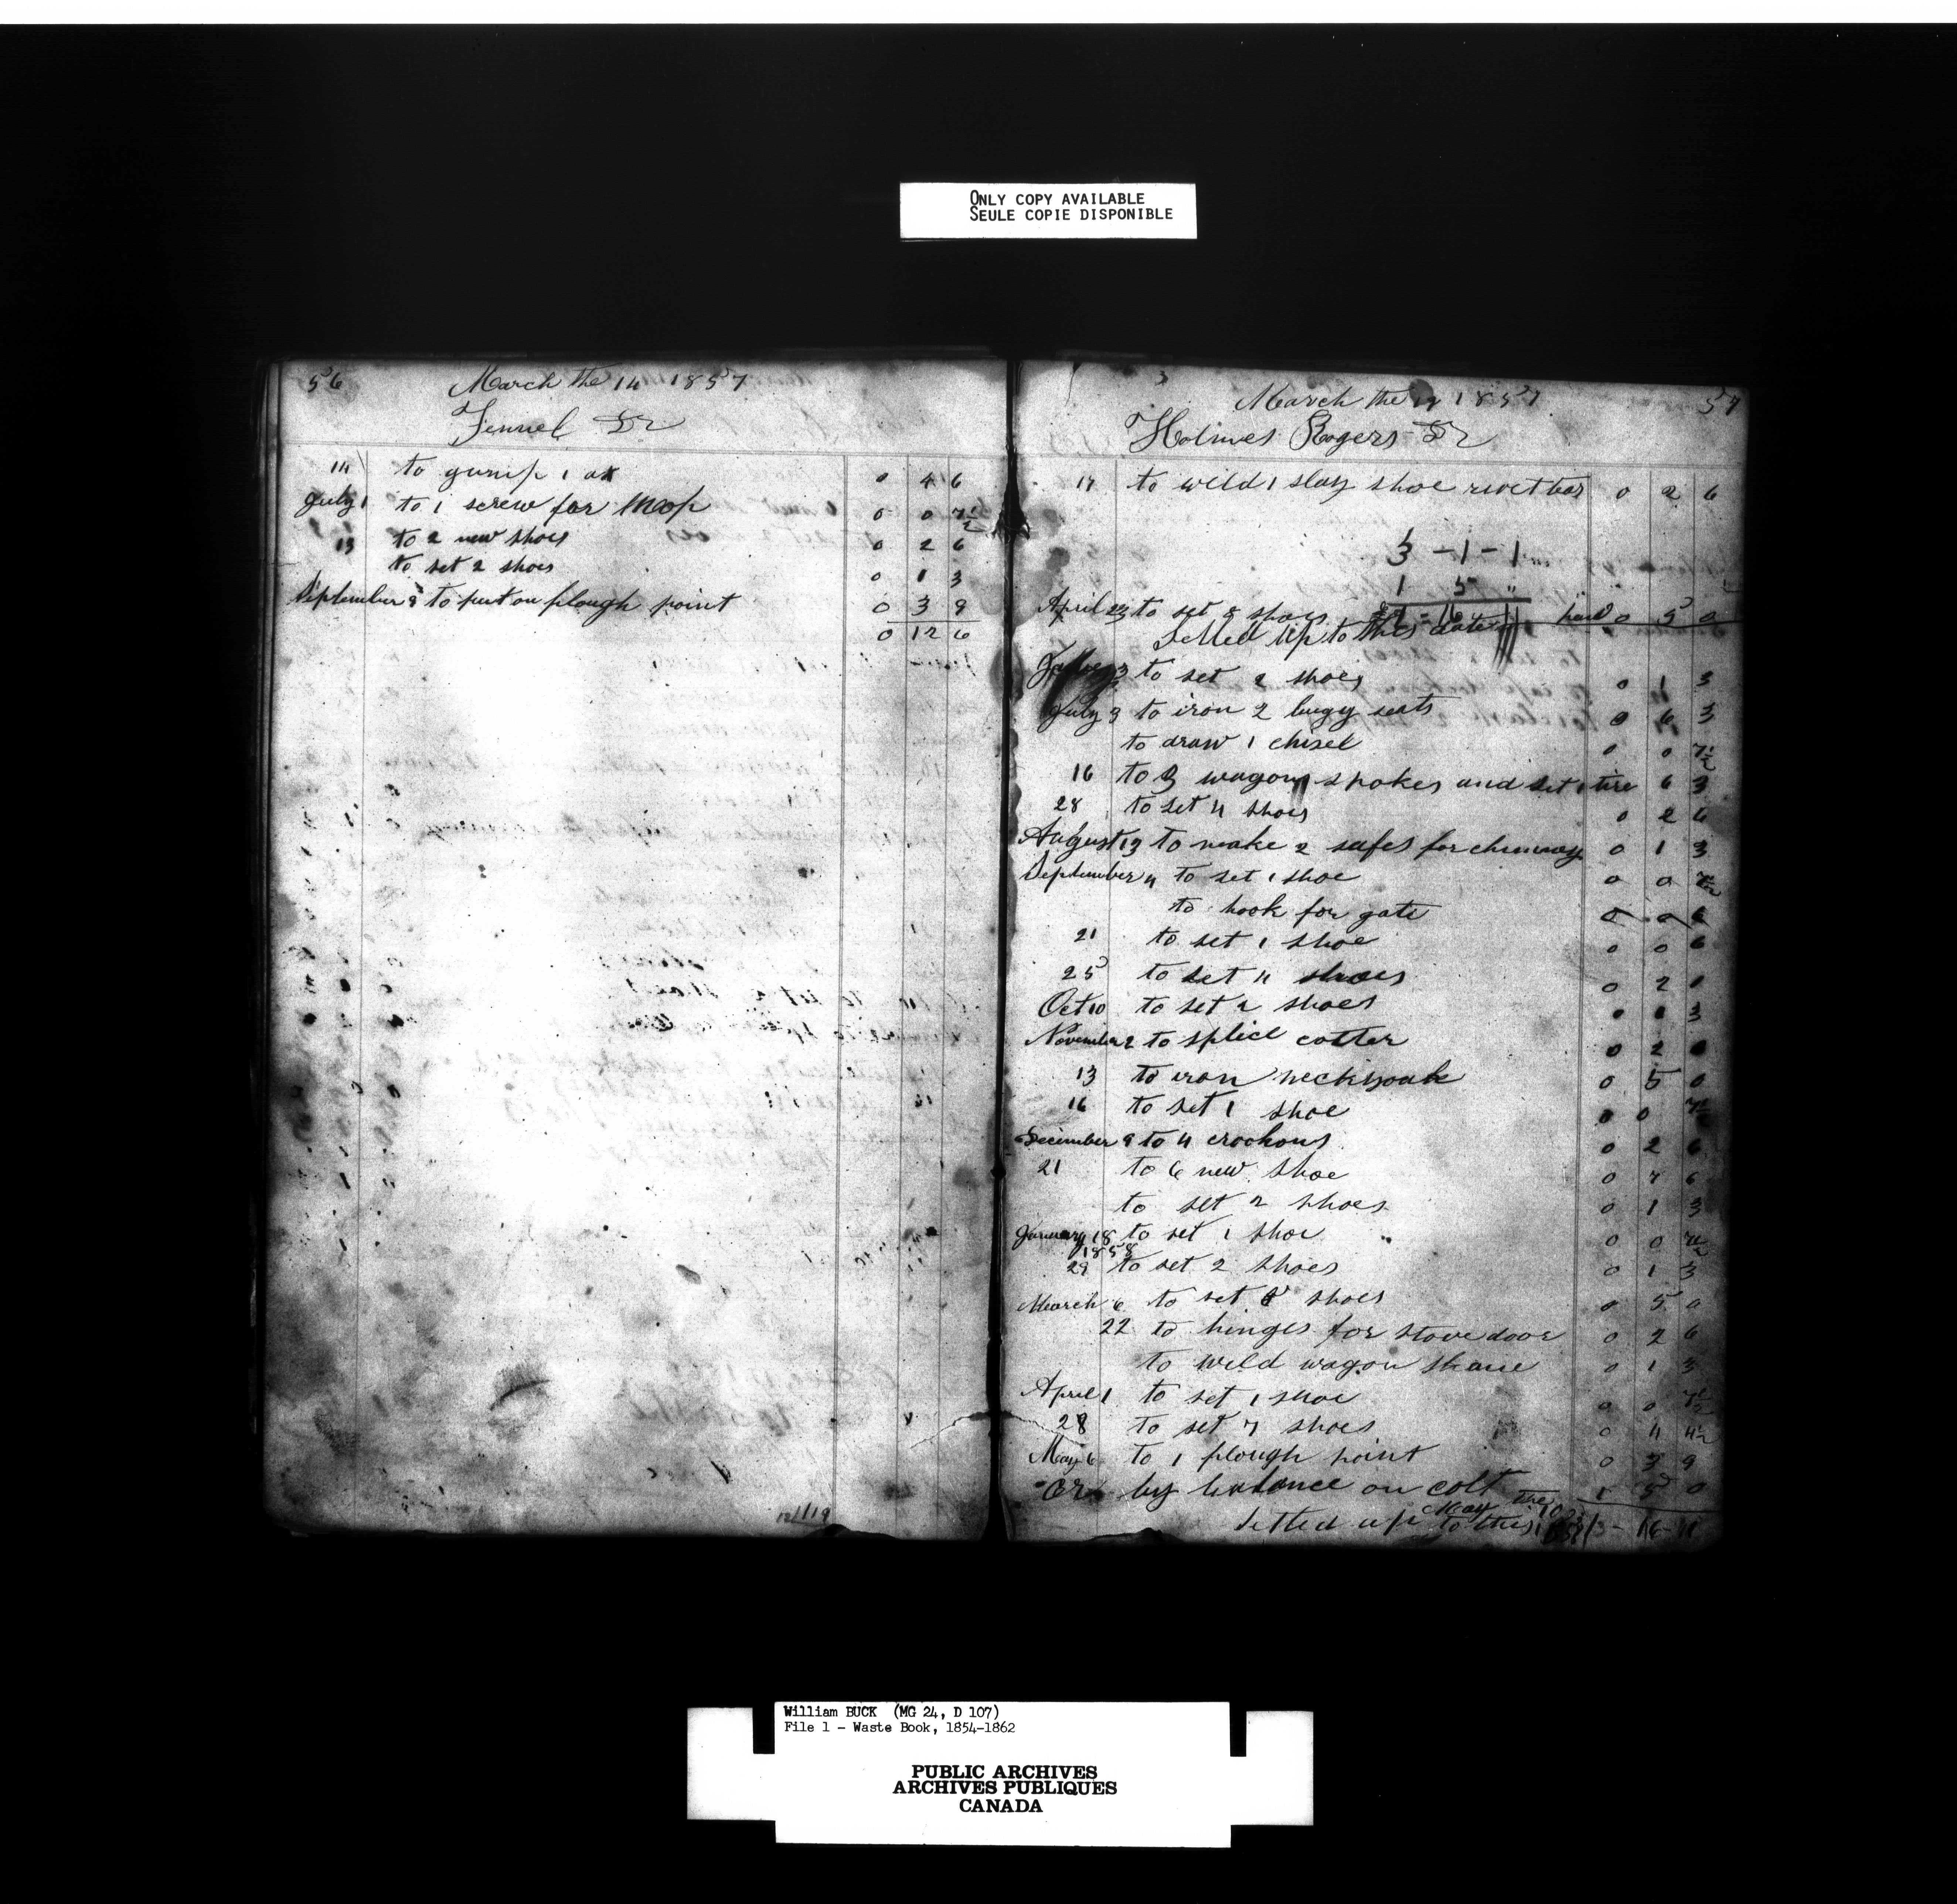 ONLY COPY AVAILABLE
SEULE COPIE DISPONIBLE
56 March the 14 1857
Fennel Dr
14 to gump 1 ax 0 4 6
July 1 to 1 screw for 0 0 7½
13 to 2 new shoes 0 2 6
to set 2 shoes 0 1 3
September 8 to put on plough point 0 3 9
0 12 6
March the 17 1857 57
Holmes Rogers Dr
17 to weld 1 slay shoe rivet bar 0 2 6
3 - 1 - 1
1 5 "
April 23 to set 8 shoes 0 5 0
Setled up to this date
3 to set 2 shoes 0 1 3
July 3 to iron 2 bugy seats 0 6 3
to draw 1 chisel 0 0 7½
16 to 3 wagon spokes and set 1 tire 6 3
28 to set 4 shoes 0 2 6
August 13 to make 2 safes for chimney 0 1 3
September 4 to set 1 shoe 0 0 7½
to hook for gate 0 0
21 to set 1 shoe 0 0 6
25 to set 4 shoes 0 2
Oct 10 to set 2 shoes 3
November 2 to splice cotter 0 2
13 to iron neckyoak 0 5 0
16 to set 1 shoe 0 0 7½
December 9 to 4 crookous 0 2 6
21 to 6 new shoe 0 7 6
to set 2 shoes 0 1 3
January 18 to set 1 shoe 0 0 7½
1858
29 to set 2 shoes 0 1 3
March 6 to set 8 shoes 0 5 0
22 to hinges for stove door 0 2 6
to weld wagon 0 1 3
April 1 to set 1 shoe 0 0 7½
28 to set 7 shoes 0 4 4½
May 6 to 1 plough point 0 3 9
Cr by balance on colt 1 5 0
Setled up to this May the 10 1858 3 - 16 - 11
William BUCK (MG 24, D 107)
File 1 - Waste Book, 1854-1862
PUBLIC ARCHIVES
ARCHIVES PUBLIQUES
CANADA